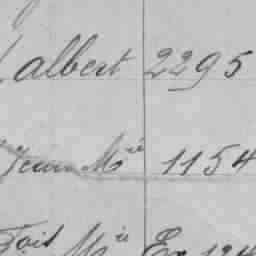 albert 2295
Jean Mie 1154
Toit Mie Ex 124